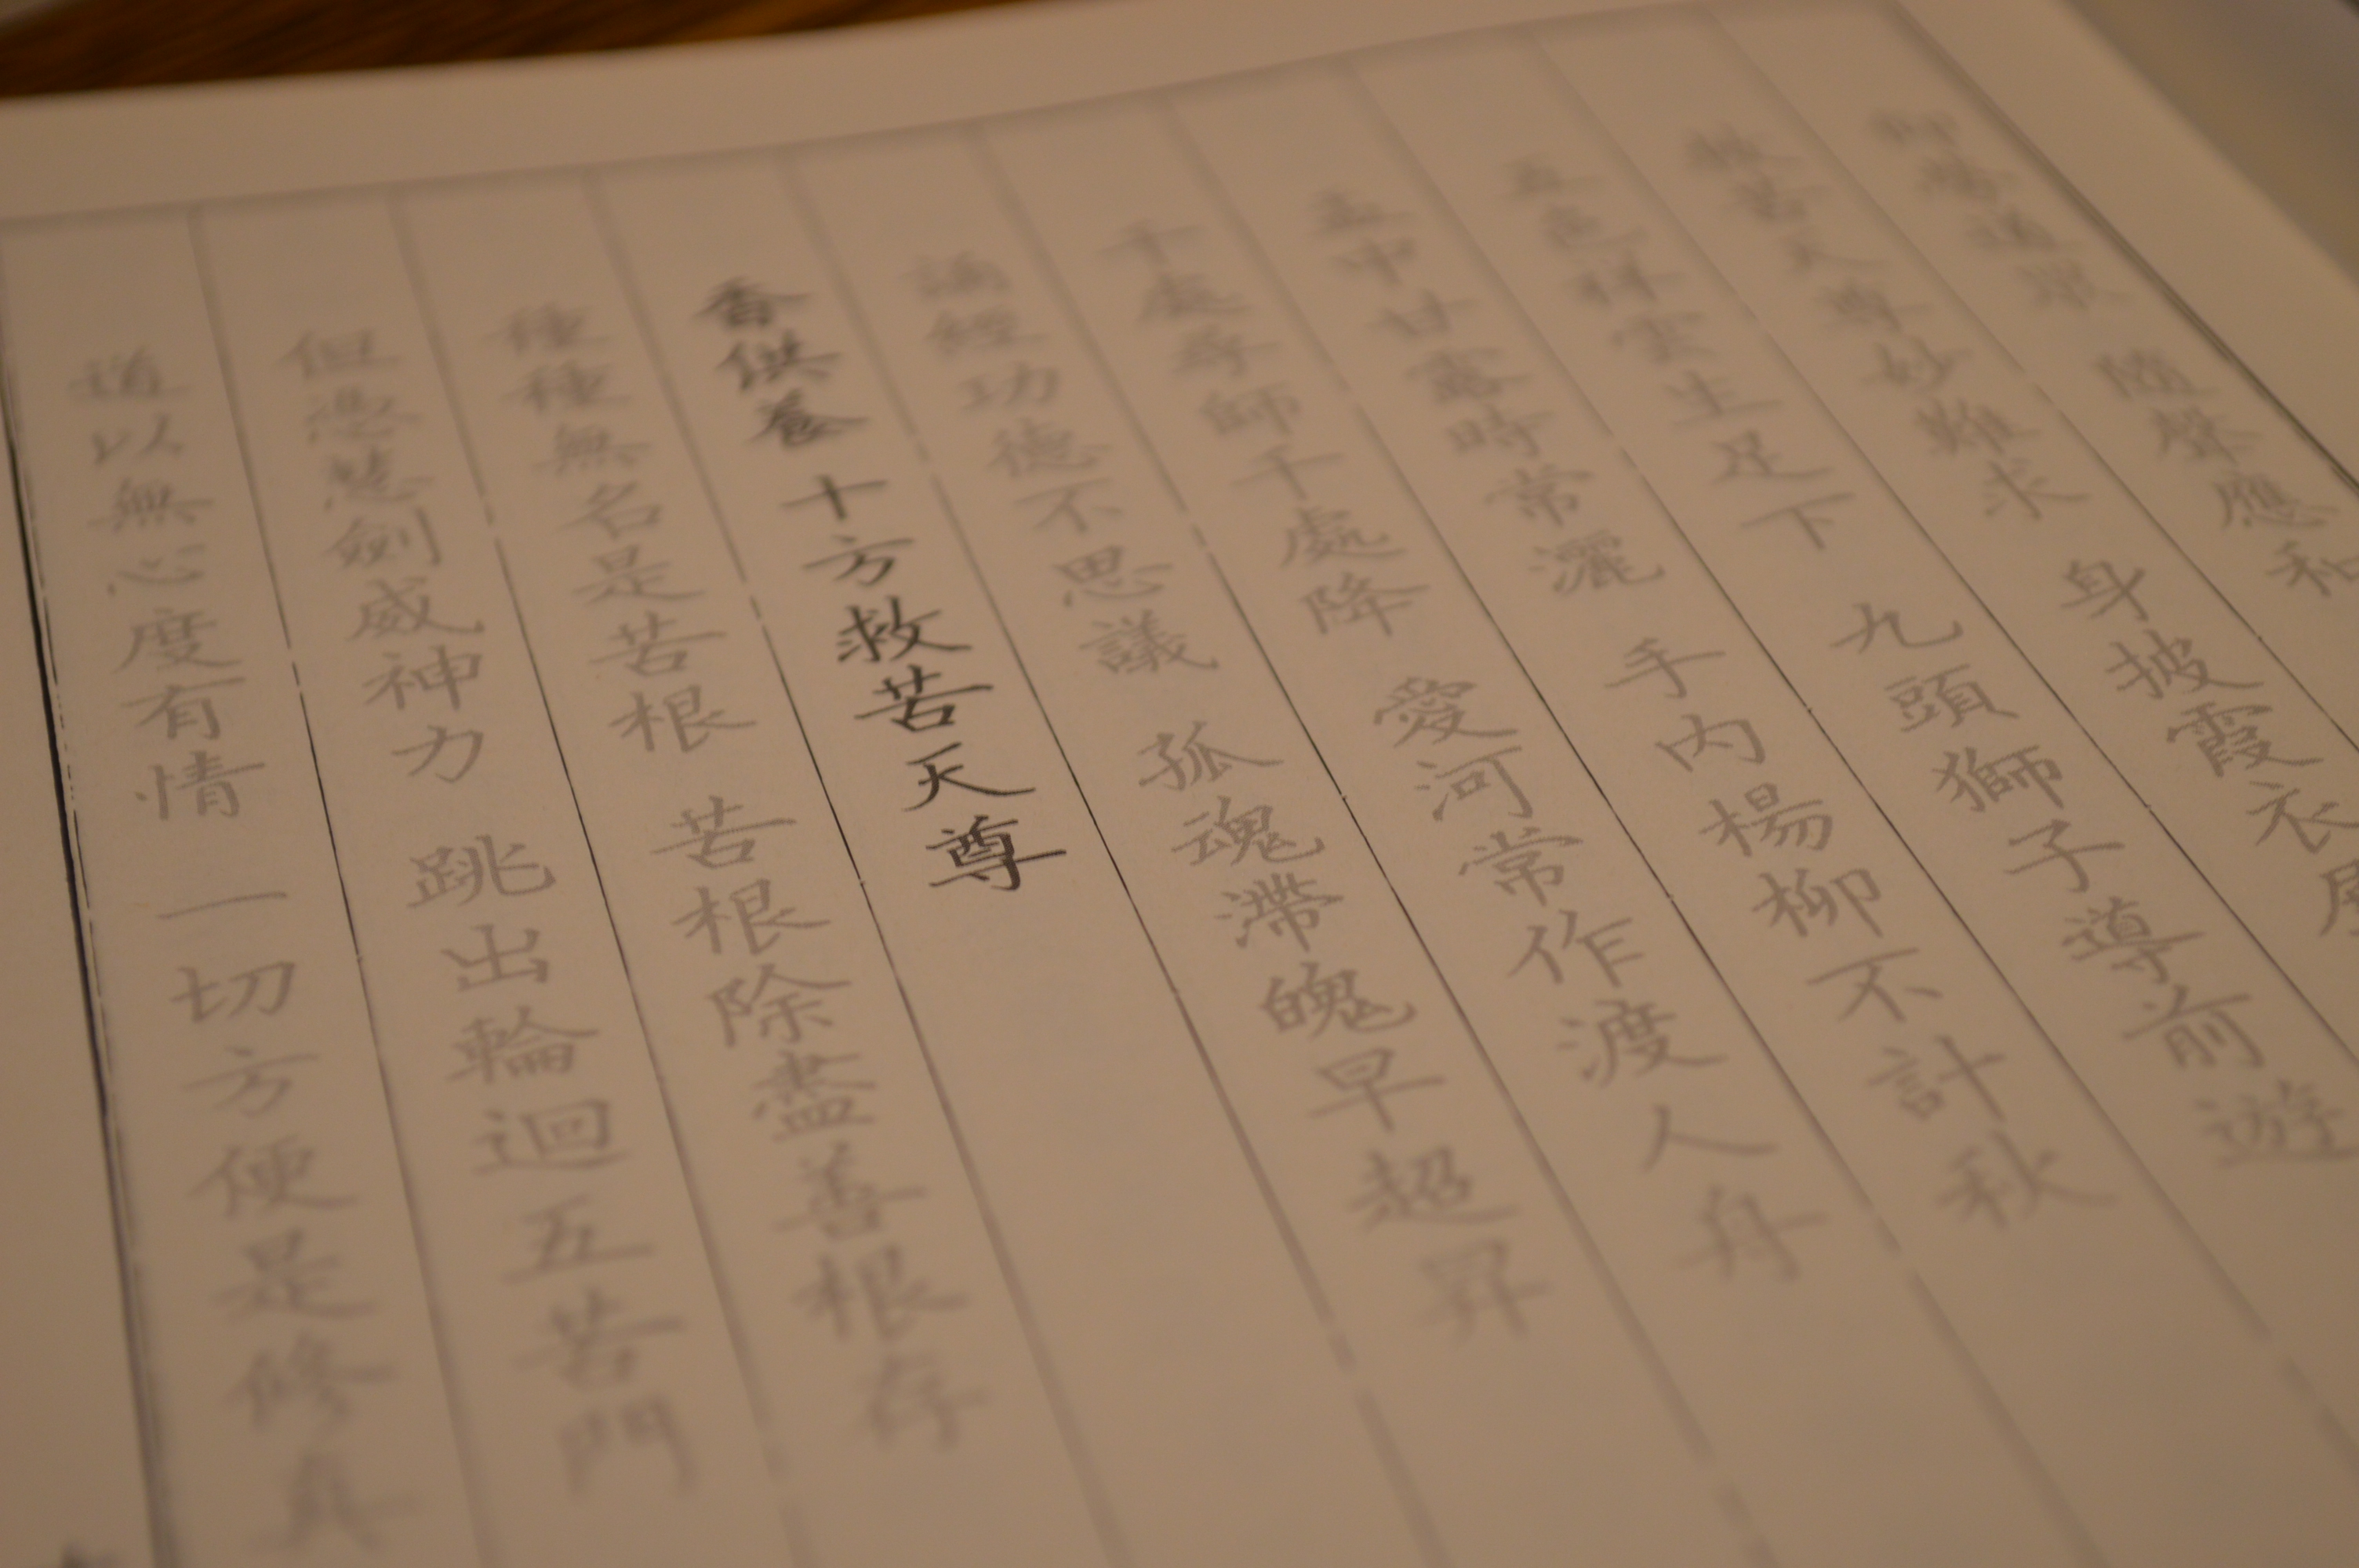 道眾 隨聲應和
救苦天尊妙難求 身披霞衣
五色祥雲生足下 九頭獅子導前遊
盂中甘露時常灑 手內楊柳不計秋
千處尋師千處降 愛河常作渡人舟
誦經功德不思議 孤魂滯魄早超昇
香供養 十方救苦天尊
種種無名是苦根 苦根除盡善根存
但憑慧劍威神力 跳出輪迴五苦門
道以無心度有情 一切方便是修真